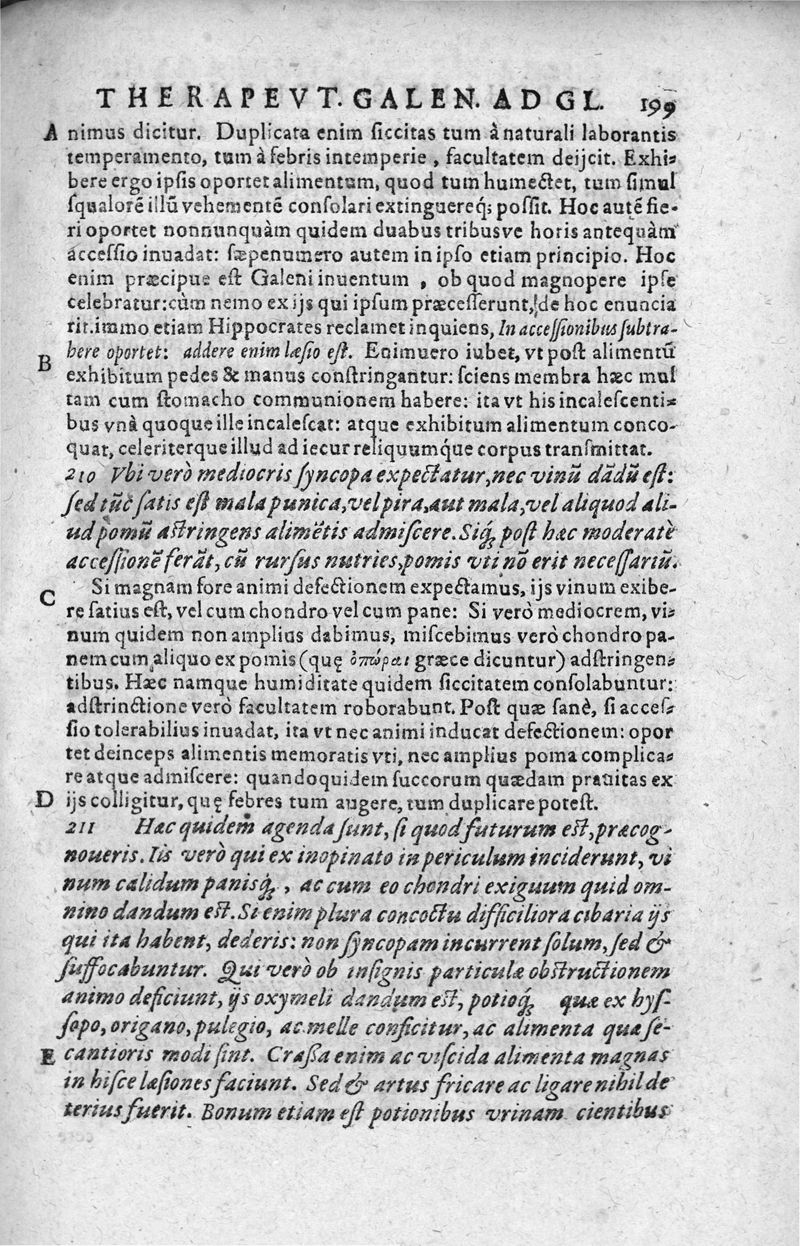 THERAPEVT. GALEN. AD GL. 199
A nimus dicitur. Duplicata enim ſiccitas tum à naturali laborantis
temperamento, tum à febris intemperie, facultatem deijcit. Exhi-
bere ergo ipſis oportet alimentum, quod tum humectet, tum ſimul
ſqualorẽ illũ vehementẽ conſolari extinguereq́; poſſit. Hoc autẽ fie-
ri oportet nonnunquàm quidem duabus tribusve horis antequàm
acceſſio inuadat: ſæpenumero autem in ipſo etiam principio. Hoc
enim præcipue eſt Galeni inuentum, ob quod magnopere ipſe
celebratur: cùm nemo ex ijs qui ipſum præceſſerunt, de hoc enuncia
rit. immo etiam Hippocrates reclamet inquiens, In acceſſionibus ſubtra-
B here oportet: addere enim læſio eſt. Enimuero iubet, vt poſt alimentũ
exhibitum pedes & manus conſtringantur: ſciens membra hæc mul
tam cum ſtomacho communionem habere: ita vt his incaleſcenti-
bus vnà quoque ille incaleſcat: atque exhibitum alimentum conco-
quat, celeriterque illud ad iecur reliquumq́ue corpus tranſmittat.
210 Vbi verò mediocris ſyncopa expectatur, nec vinũ dãdũ eſt:
ſed tũc ſatis eſt mala punica, vel pira, aut mala, vel aliquod ali-
ud pomũ aſtringens alimẽtis admiſcere. Siq́; poſt hac moderatè
acceſſionẽ ferãt, cũ rurſus nutries, pomis vti nõ erit neceſſariũ.
C Si magnam fore animi defectionem expectamus, ijs vinum exibe-
re ſatius eſt, vel cum chondro vel cum pane: Si verò mediocrem, vi-
num quidem non amplius dabimus, miſcebimus verò chondro pa-
nem cum aliquo ex pomis (quę ὀπώραι græce dicuntur) adſtringen-
tibus. Hæc namque humiditate quidem ſiccitatem conſolabuntur:
adſtrinctione verò facultatem roborabunt. Poſt quæ ſanè, ſi acceſ-
ſio tolerabilius inuadat, ita vt nec animi inducat defectionem: opor
tet deinceps alimentis memoratis vti, nec amplius poma complica-
re atque admiſcere: quandoquidem ſuccorum quædam prauitas ex
D ijs colligitur, quę febres tum augere, tum duplicare poteſt.
211 Hac quidem agenda ſunt, ſi quod futurum eſt, præcog-
noueris. Iis verò qui ex inopinato in periculum inciderunt, vi
num calidum panisq́;, ac cum eo chondri exiguum quid om-
nino dandum eſt. Si enim plura concoctu difficiliora cibaria ijs
qui ita habent, dederis: non ſyncopam incurrent ſolum, ſed &
ſuffocabuntur. Qui verò ob inſignis particulæ obſtructionem
animo deficiunt, ijs oxymeli dandum eſt, potioq́; quæ ex hyſ-
ſopo, origano, pulegio, ac melle conficitur, ac alimenta quæ ſe-
E cantioris modi ſint. Craßa enim ac viſcida alimenta magnas
in hiſce læſiones faciunt. Sed & artus fricare ac ligare nihil de
terius fuerit. Bonum etiam eſt potionibus vrinam cientibus